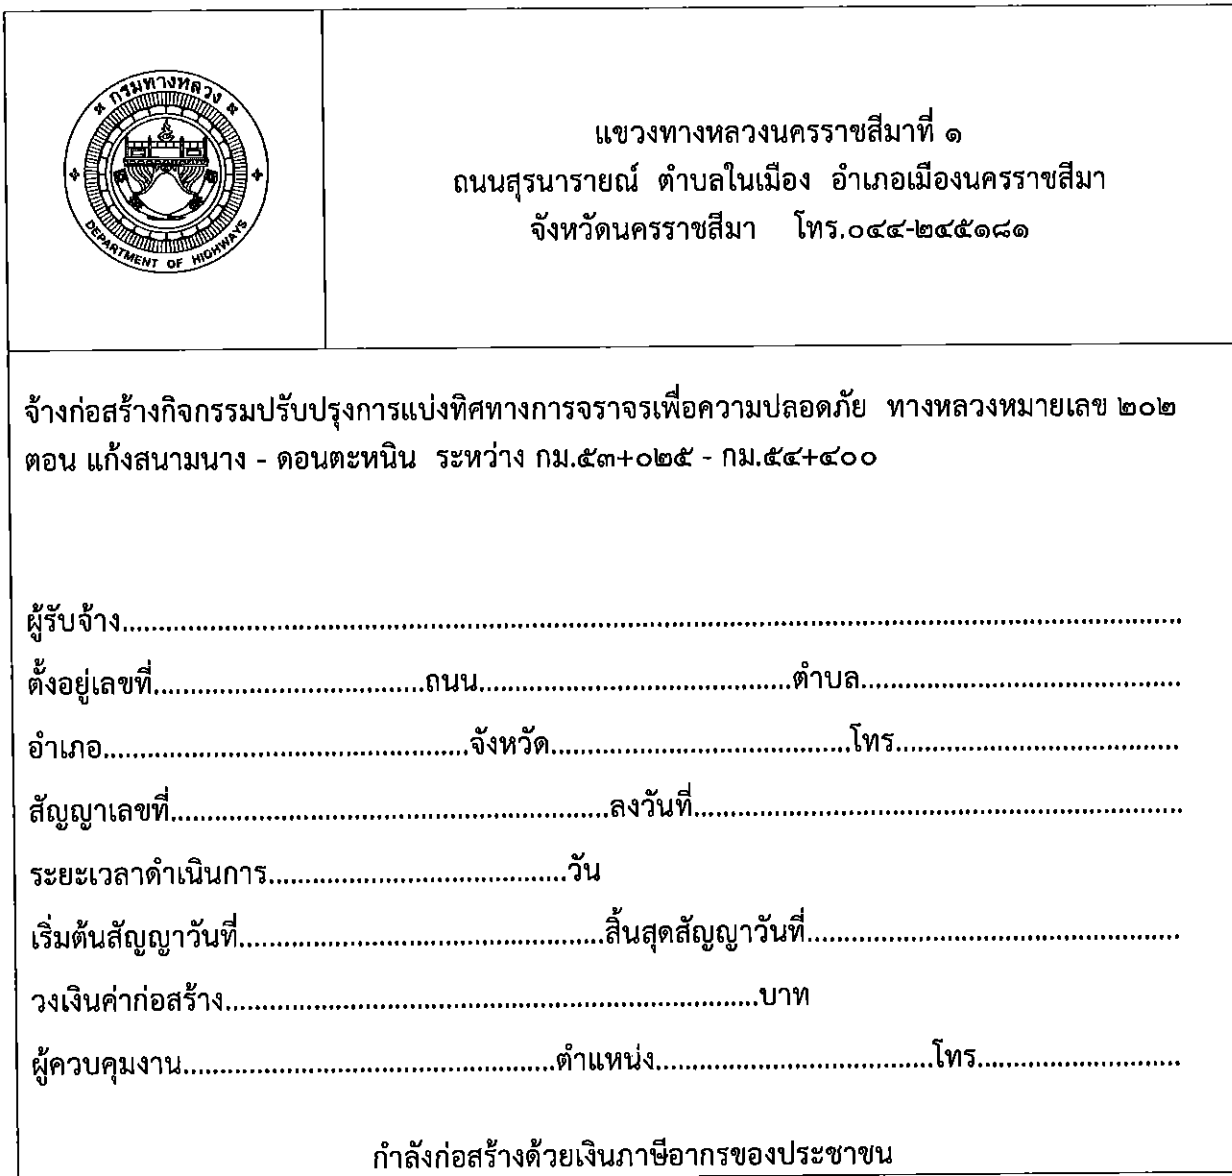 กรมทางหลวง
DEPARTMENT OF HIGHWAYS
แขวงทางหลวงนครราชสีมาที่ ๑
ถนนสุรนารายณ์ ตำบลในเมือง อำเภอเมืองนครราชสีมา
จังหวัดนครราชสีมา โทร.๐๔๔-๒๔๕๑๘๑
จ้างก่อสร้างกิจกรรมปรับปรุงการแบ่งทิศทางการจราจรเพื่อความปลอดภัย ทางหลวงหมายเลข ๒๐๒
ตอน แก้งสนามนาง - ดอนตะหนิน ระหว่าง กม.๕๓+๐๒๕ - กม.๕๔+๔๐๐
ผู้รับจ้าง..........................................................................................
ตั้งอยู่เลขที่....................................ถนน..........................................ตำบล..........................................
อำเภอ................................................จังหวัด........................................โทร......................................
สัญญาเลขที่..........................................................ลงวันที่................................................................
ระยะเวลาดำเนินการ........................................วัน
เริ่มต้นสัญญาวันที่................................................สิ้นสุดสัญญาวันที่.................................................
วงเงินค่าก่อสร้าง......................................................................บาท
ผู้ควบคุมงาน.................................................ตำแหน่ง.....................................โทร...........................
กำลังก่อสร้างด้วยเงินภาษีอากรของประชาชน